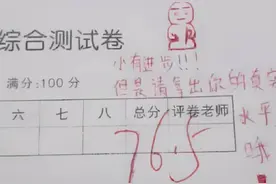 综合测试卷
小有进步!!!
满分:100分
但是请拿出你的真实
水平
哦
六 七 八 总分 评卷老师
76.5